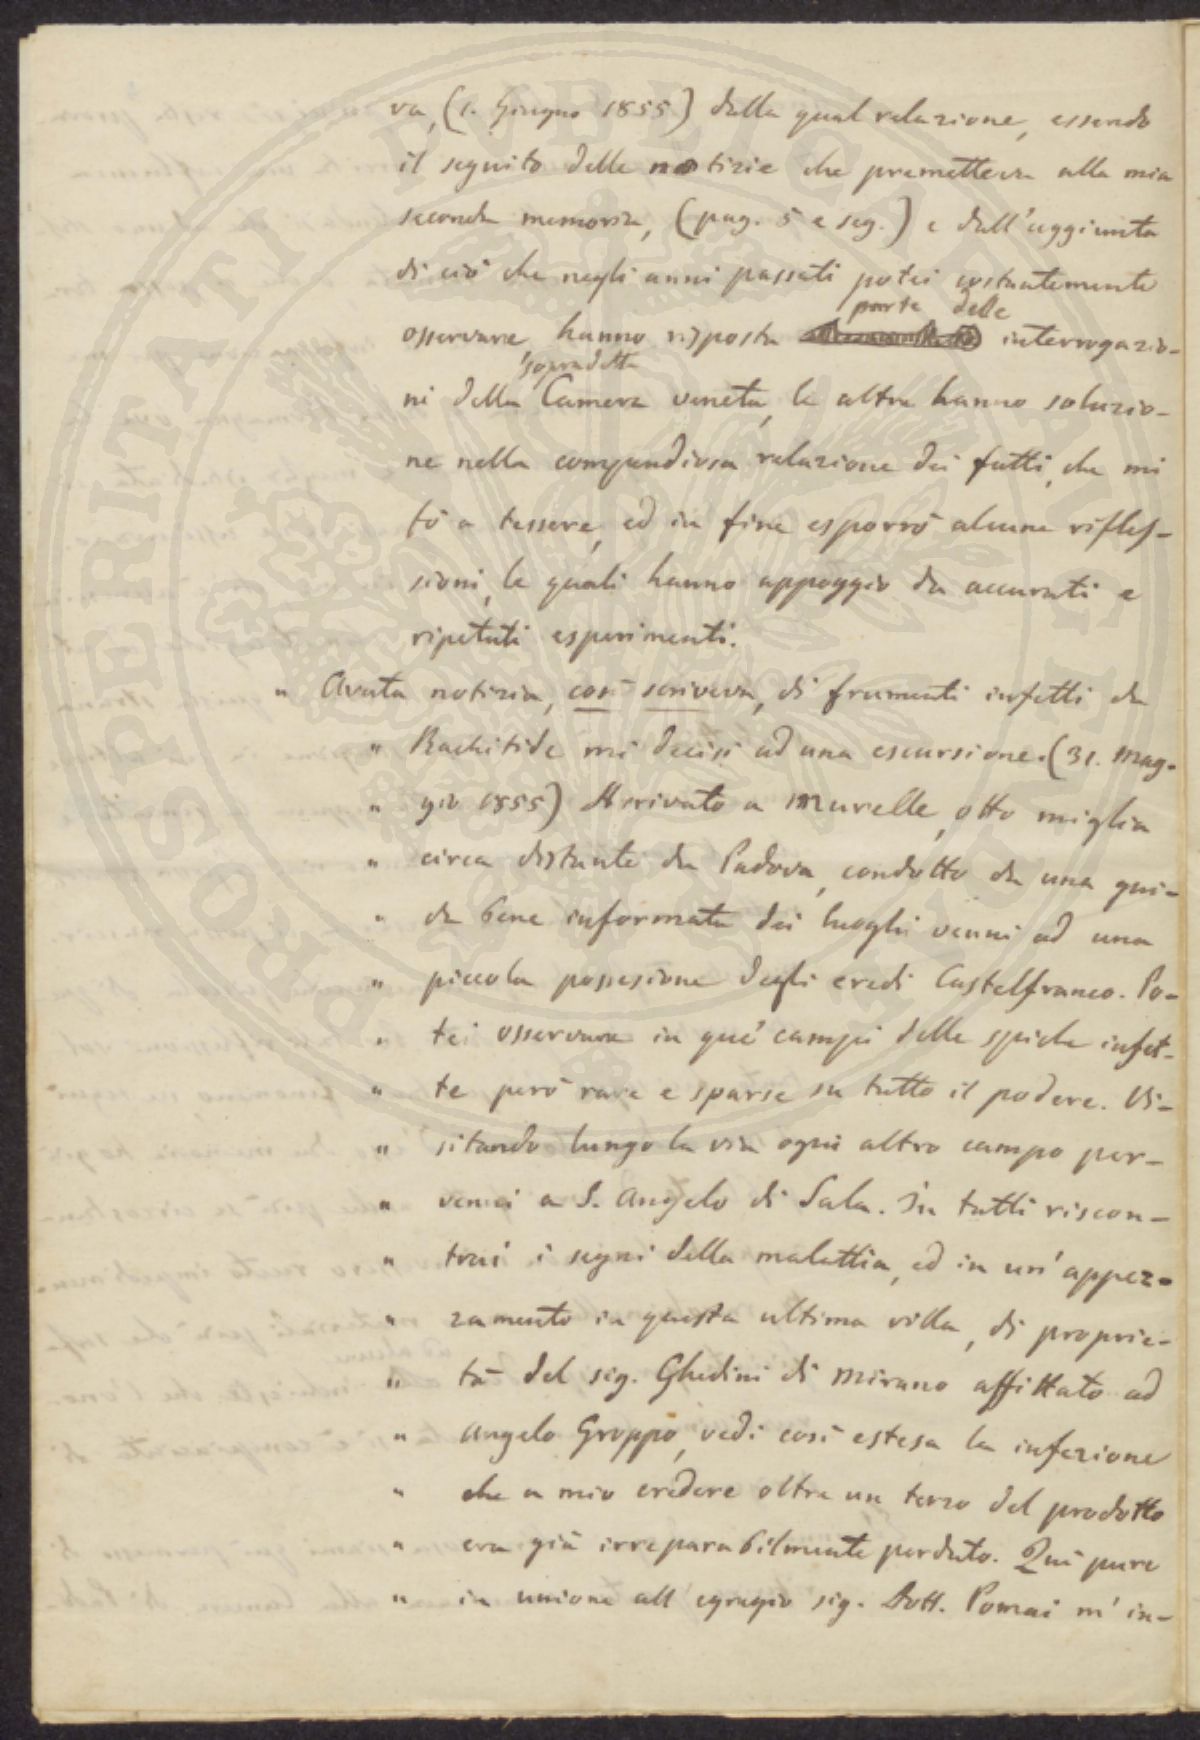 va, (1. Giugno 1855) dalla qual relazione, essendo
il seguito delle notizie che premetteva alla mia
seconda memoria, (pag. 5 e seg.) e dall'aggiunta
di ciò che negli anni passati potei costantemente
parte delle
osservare, hanno risposta interrogazio-
sopradetta
ni della Camera veneta, le altre hanno soluzio-
ne nella compendiosa relazione dei fatti, che mi
fò a tessere, ed in fine esporrò alcune rifles-
sioni, le quali hanno appoggio da accurati e
ripetuti esperimenti.
" Avuta notizia, così scriveva, di frumenti infetti da
" Rachitide mi decisi ad una escursione. (31. Mag-
" gio 1855) Arrivato a Murelle, otto miglia
" circa distante da Padova, condotto da una gui-
" da bene informata dei luoghi venni ad una
" piccola possesione degli eredi Castelfranco. Po-
" tei osservare in que' campi delle spiche infet-
" te però rare e sparse su tutto il podere. Vi-
" sitando lungo la via ogni altro campo per-
" venni a S. Angelo di Sala. In tutti riscon-
" trai i segni della malattia, ed in un' appez-
" zamento in questa ultima villa, di proprie-
" tà del sig. Ghedini di Mirano affittato ad
" Angelo Groppo, vedi così estesa la infezione
" che a mio credere oltre un terzo del prodotto
" era già irreparabilmente perduto. Qui pure
" in unione all' egregio sig. Dott. Pomai m' in-
PROSPERITATI PUBLICAE AUGENDAE